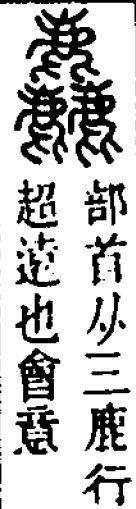 麤
部首从三鹿行
超遠也會意